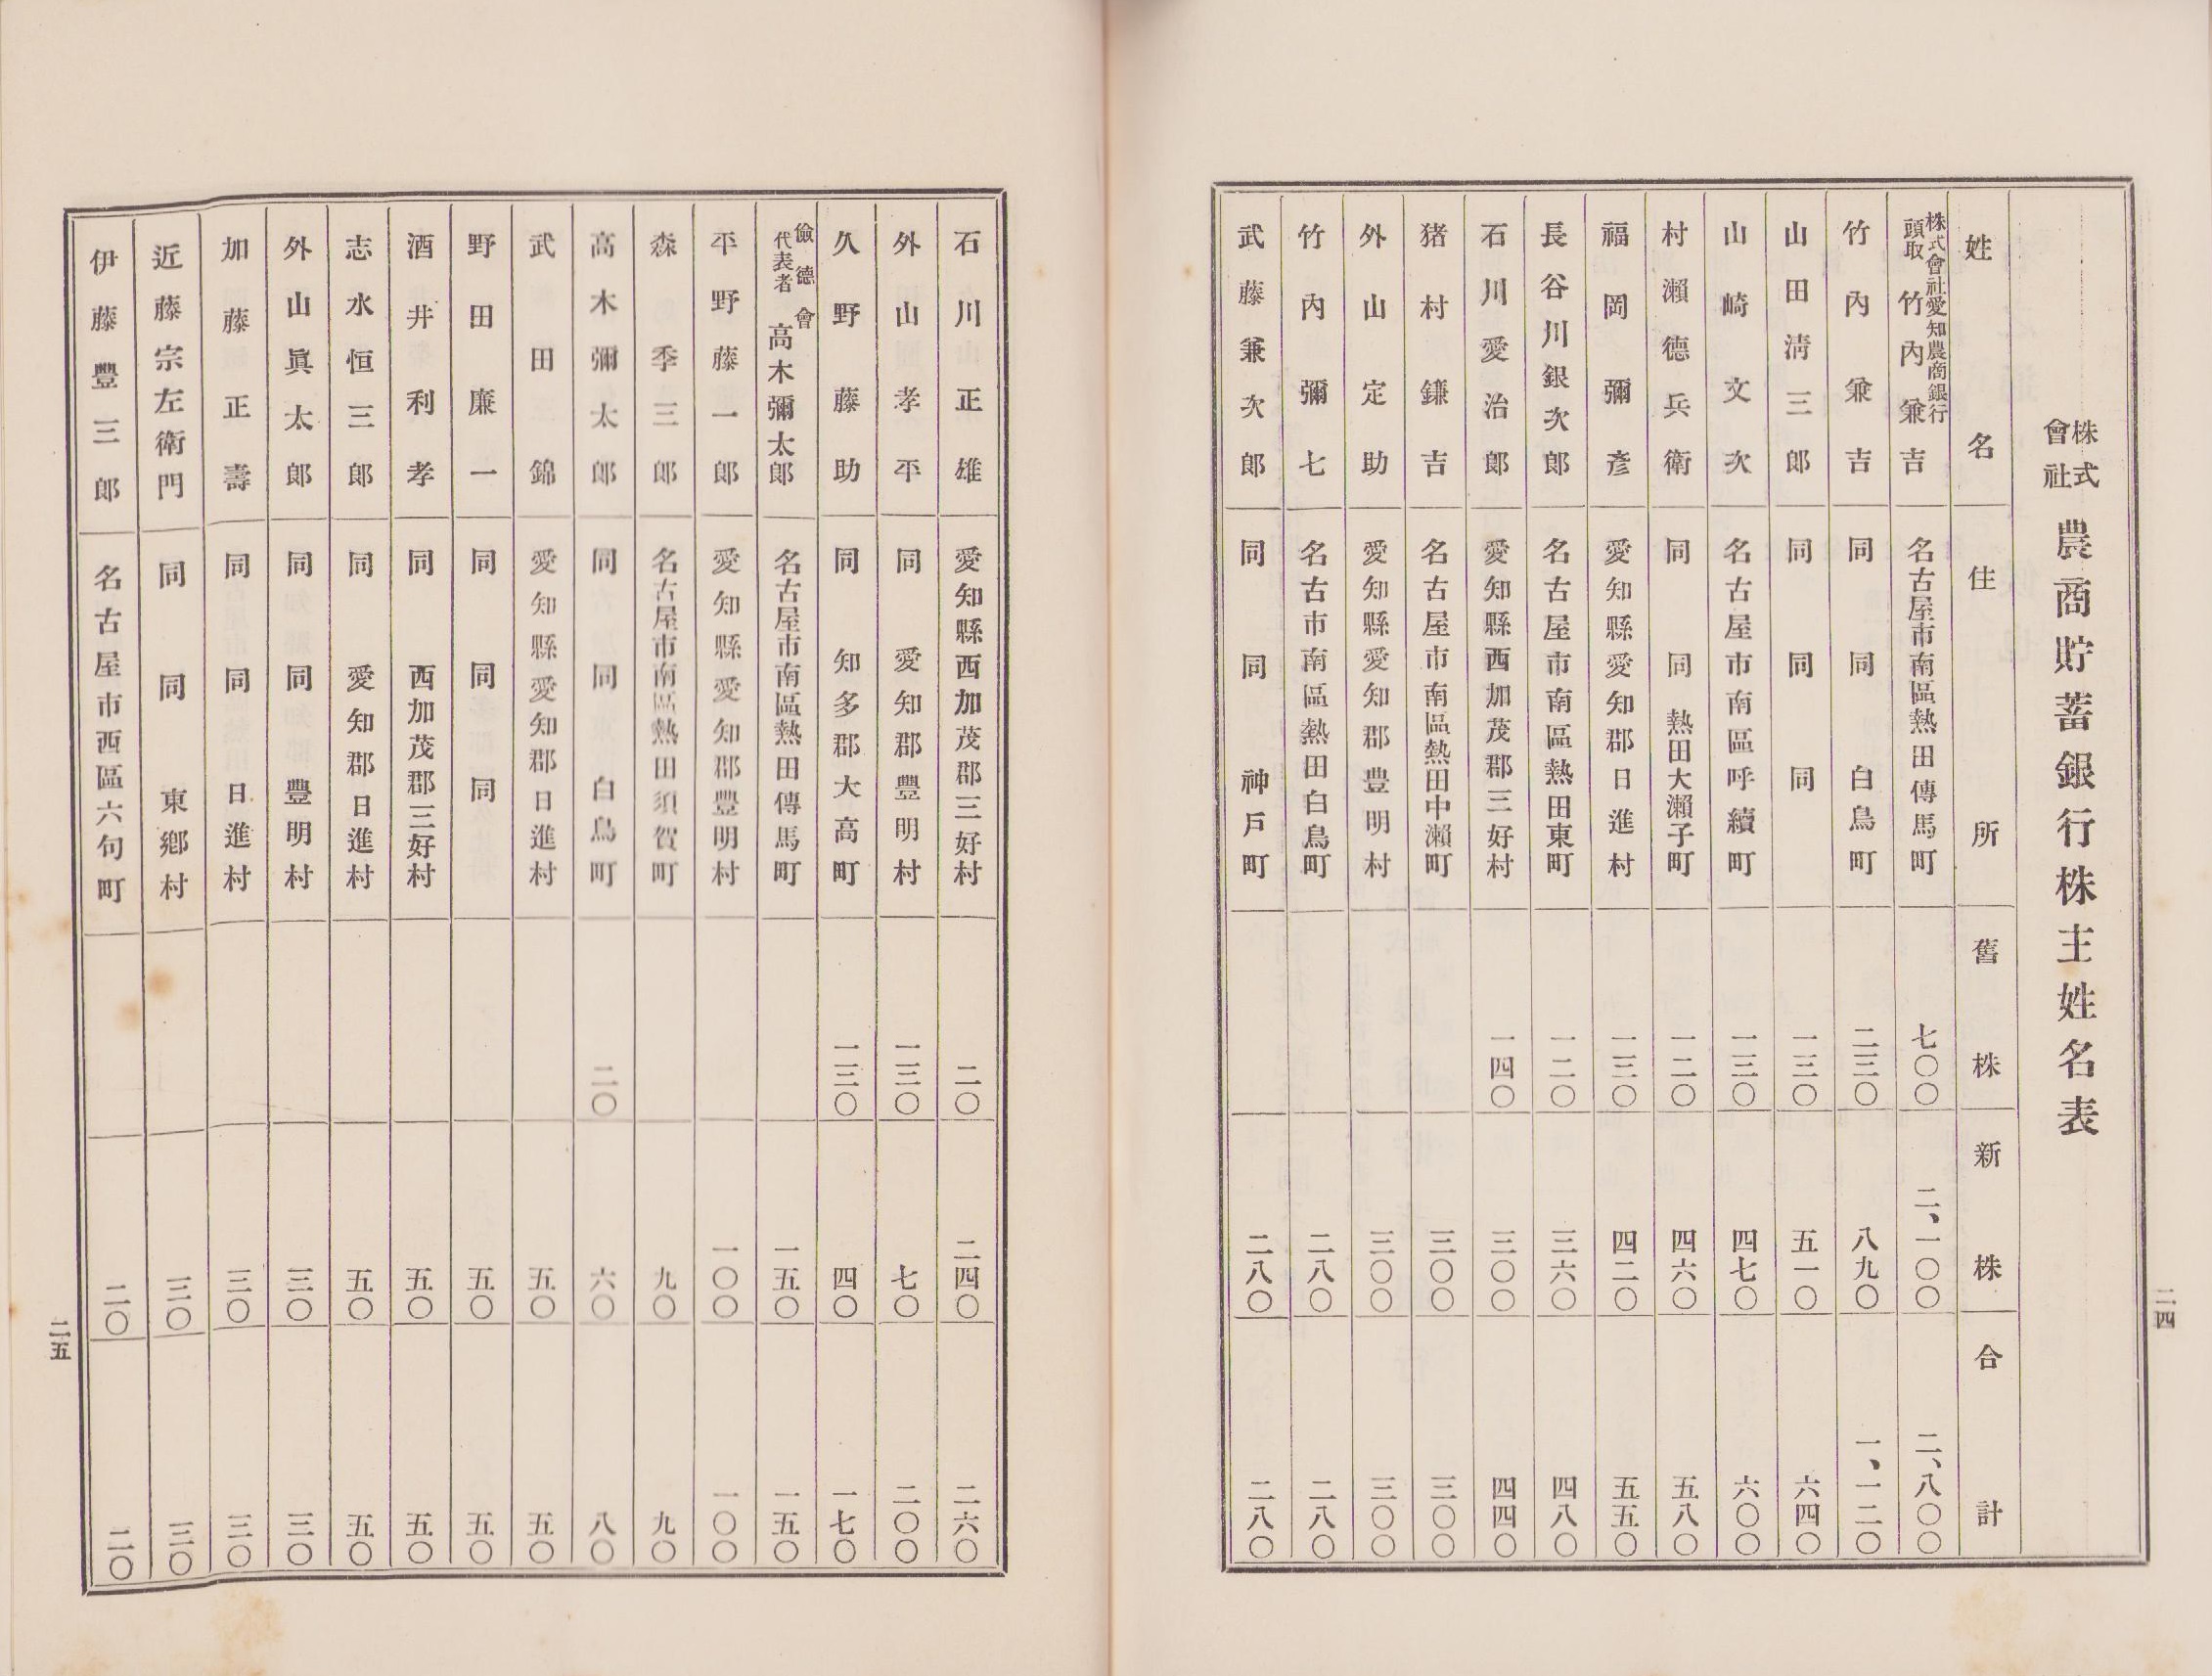 株式會社 農商貯蓄銀行株主姓名表
姓名 住所 舊株 新株 合計
株式會社愛知農商銀行頭取 竹內兼吉 名古屋市南區熱田傳馬町 七〇〇 二、一〇〇 二、八〇〇
竹內兼吉 同 同 白鳥町 二三〇 八九〇 一、一二〇
山田淸三郎 同 同 同 一三〇 五一〇 六四〇
山崎文次 名古屋市南區呼續町 一三〇 四七〇 六〇〇
村瀨德兵衛 同 同 熱田大瀨子町 一二〇 四六〇 五八〇
福岡彌彥 愛知縣愛知郡日進村 一三〇 四二〇 五五〇
長谷川銀次郎 名古屋市南區熱田東町 一二〇 三六〇 四八〇
石川愛治郎 愛知縣西加茂郡三好村 一四〇 三〇〇 四四〇
猪村鎌吉 名古屋市南區熱田中瀨町 三〇〇 三〇〇
外山定助 愛知縣愛知郡豊明村 三〇〇 三〇〇
竹內彌七 名古市南區熱田白鳥町 二八〇 二八〇
武藤兼次郎 同 同 神戶町 二八〇 二八〇
二四
石川正雄 愛知縣西加茂郡三好村 二〇 二四〇 二六〇
外山孝平 同 愛知郡豊明村 一三〇 七〇 二〇〇
久野藤助 同 知多郡大高町 一三〇 四〇 一七〇
儉德會代表者 高木彌太郎 名古屋市南區熱田傳馬町 一五〇 一五〇
平野藤一郎 愛知縣愛知郡豐明村 一〇〇 一〇〇
森季三郎 名古屋市南區熱田須賀町 九〇 九〇
高木彌太郎 同 同 白鳥町 二〇 六〇 八〇
武田錦 愛知縣愛知郡日進村 五〇 五〇
野田廉一 同 同 同 五〇 五〇
酒井利孝 同 西加茂郡三好村 五〇 五〇
志水恒三郎 同 愛知郡日進村 五〇 五〇
外山眞太郎 同 同 豐明村 三〇 三〇
加藤正壽 同 同 日進村 三〇 三〇
近藤宗左衛門 同 同 東鄉村 三〇 三〇
伊藤豐三郎 名古屋市西區六句町 二〇 二〇
二五